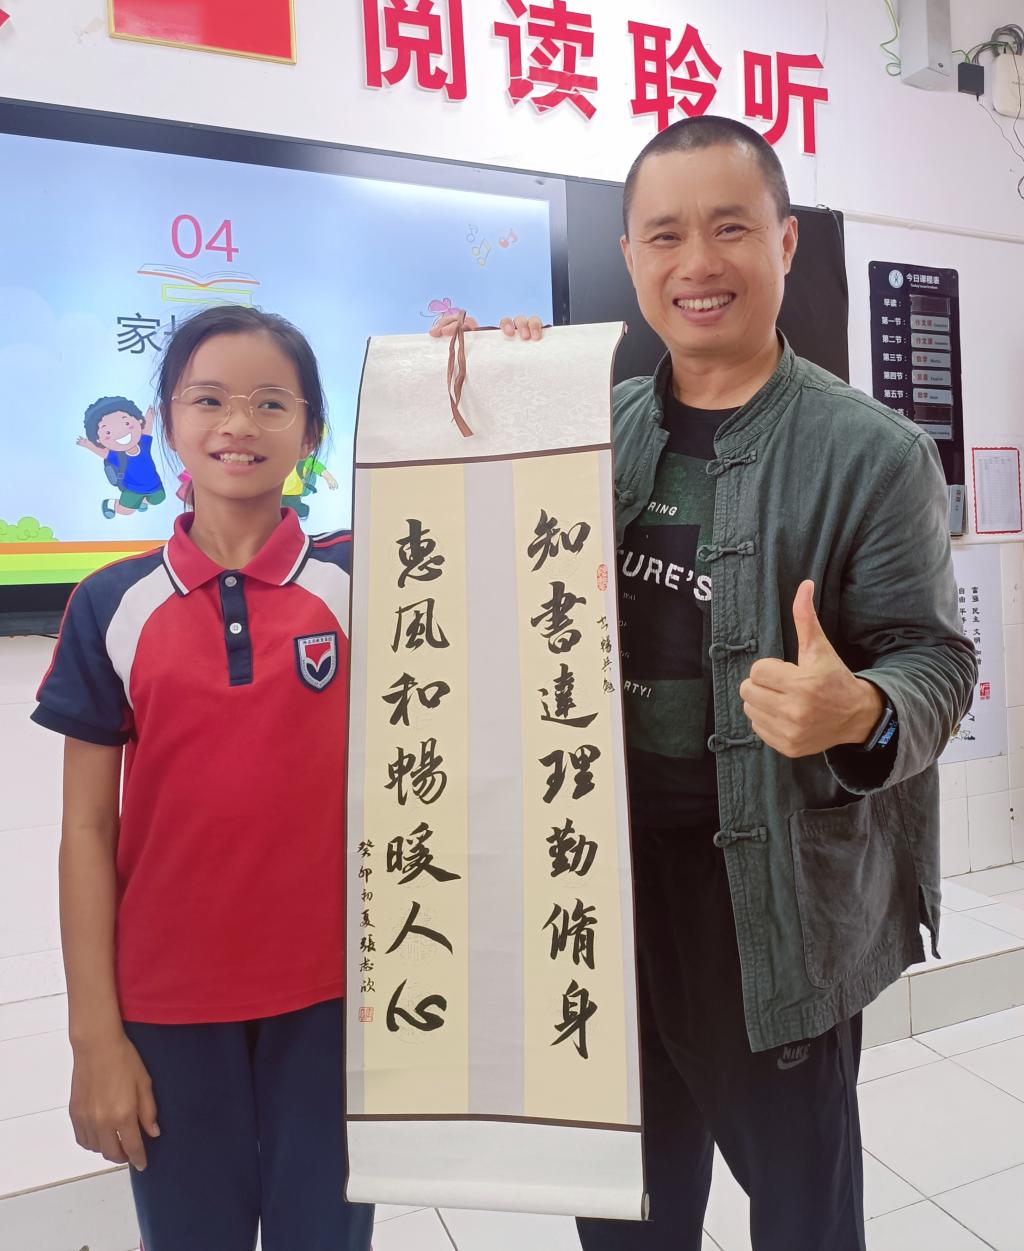 阅读 聆听
04
家长
今日课程表
早读：
第一节：作文课
第二节：作文课
第三节：数学
第四节：英语
第五节：数学
知書達理勤脩身
惠風和暢暖人心
癸卯初夏張志欣
RING
TURE'S
RTY!
NIKE
富强 民主 文明
自由 平等